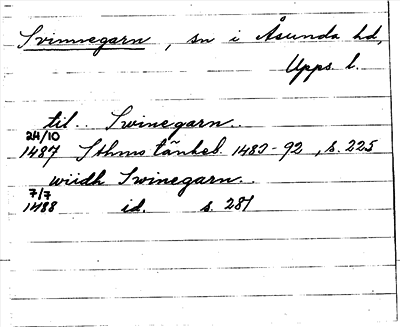 Svinnegarn, sn i Åsunda hd,
Upps. l.
til.. Swinegarn..
24/10
1487 Sthms tänkeb. 1483-92, s. 225
wiidh Swinegarn..
7/7
1488 id. s. 281